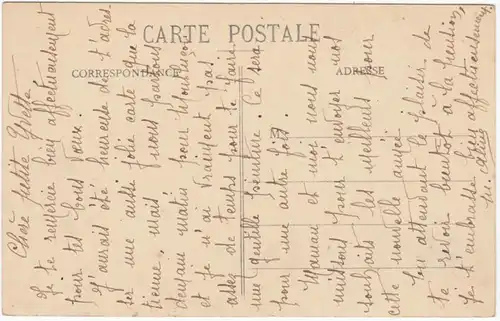 CARTE POSTALE
CORRESPONDANCE
ADRESSE
Chère petite Yvette
Je te remercie bien affectueusement
pour tes bons vœux.
J'aurais été heureuse de t'adres
ser une aussi jolie carte que la
tienne, mais nous partons
demain matin pour
et je n'ai vraiment pas
assez de temps pour te faire
une gentille peinture. Ce sera
pour une autre fois.
Maman et moi nous nous
unissons pour t'envoyer nos
souhaits les meilleurs pour
cette nouvelle année.
En attendant le plaisir de
te revoir bientôt à la
je t'embrasse bien affectueusement